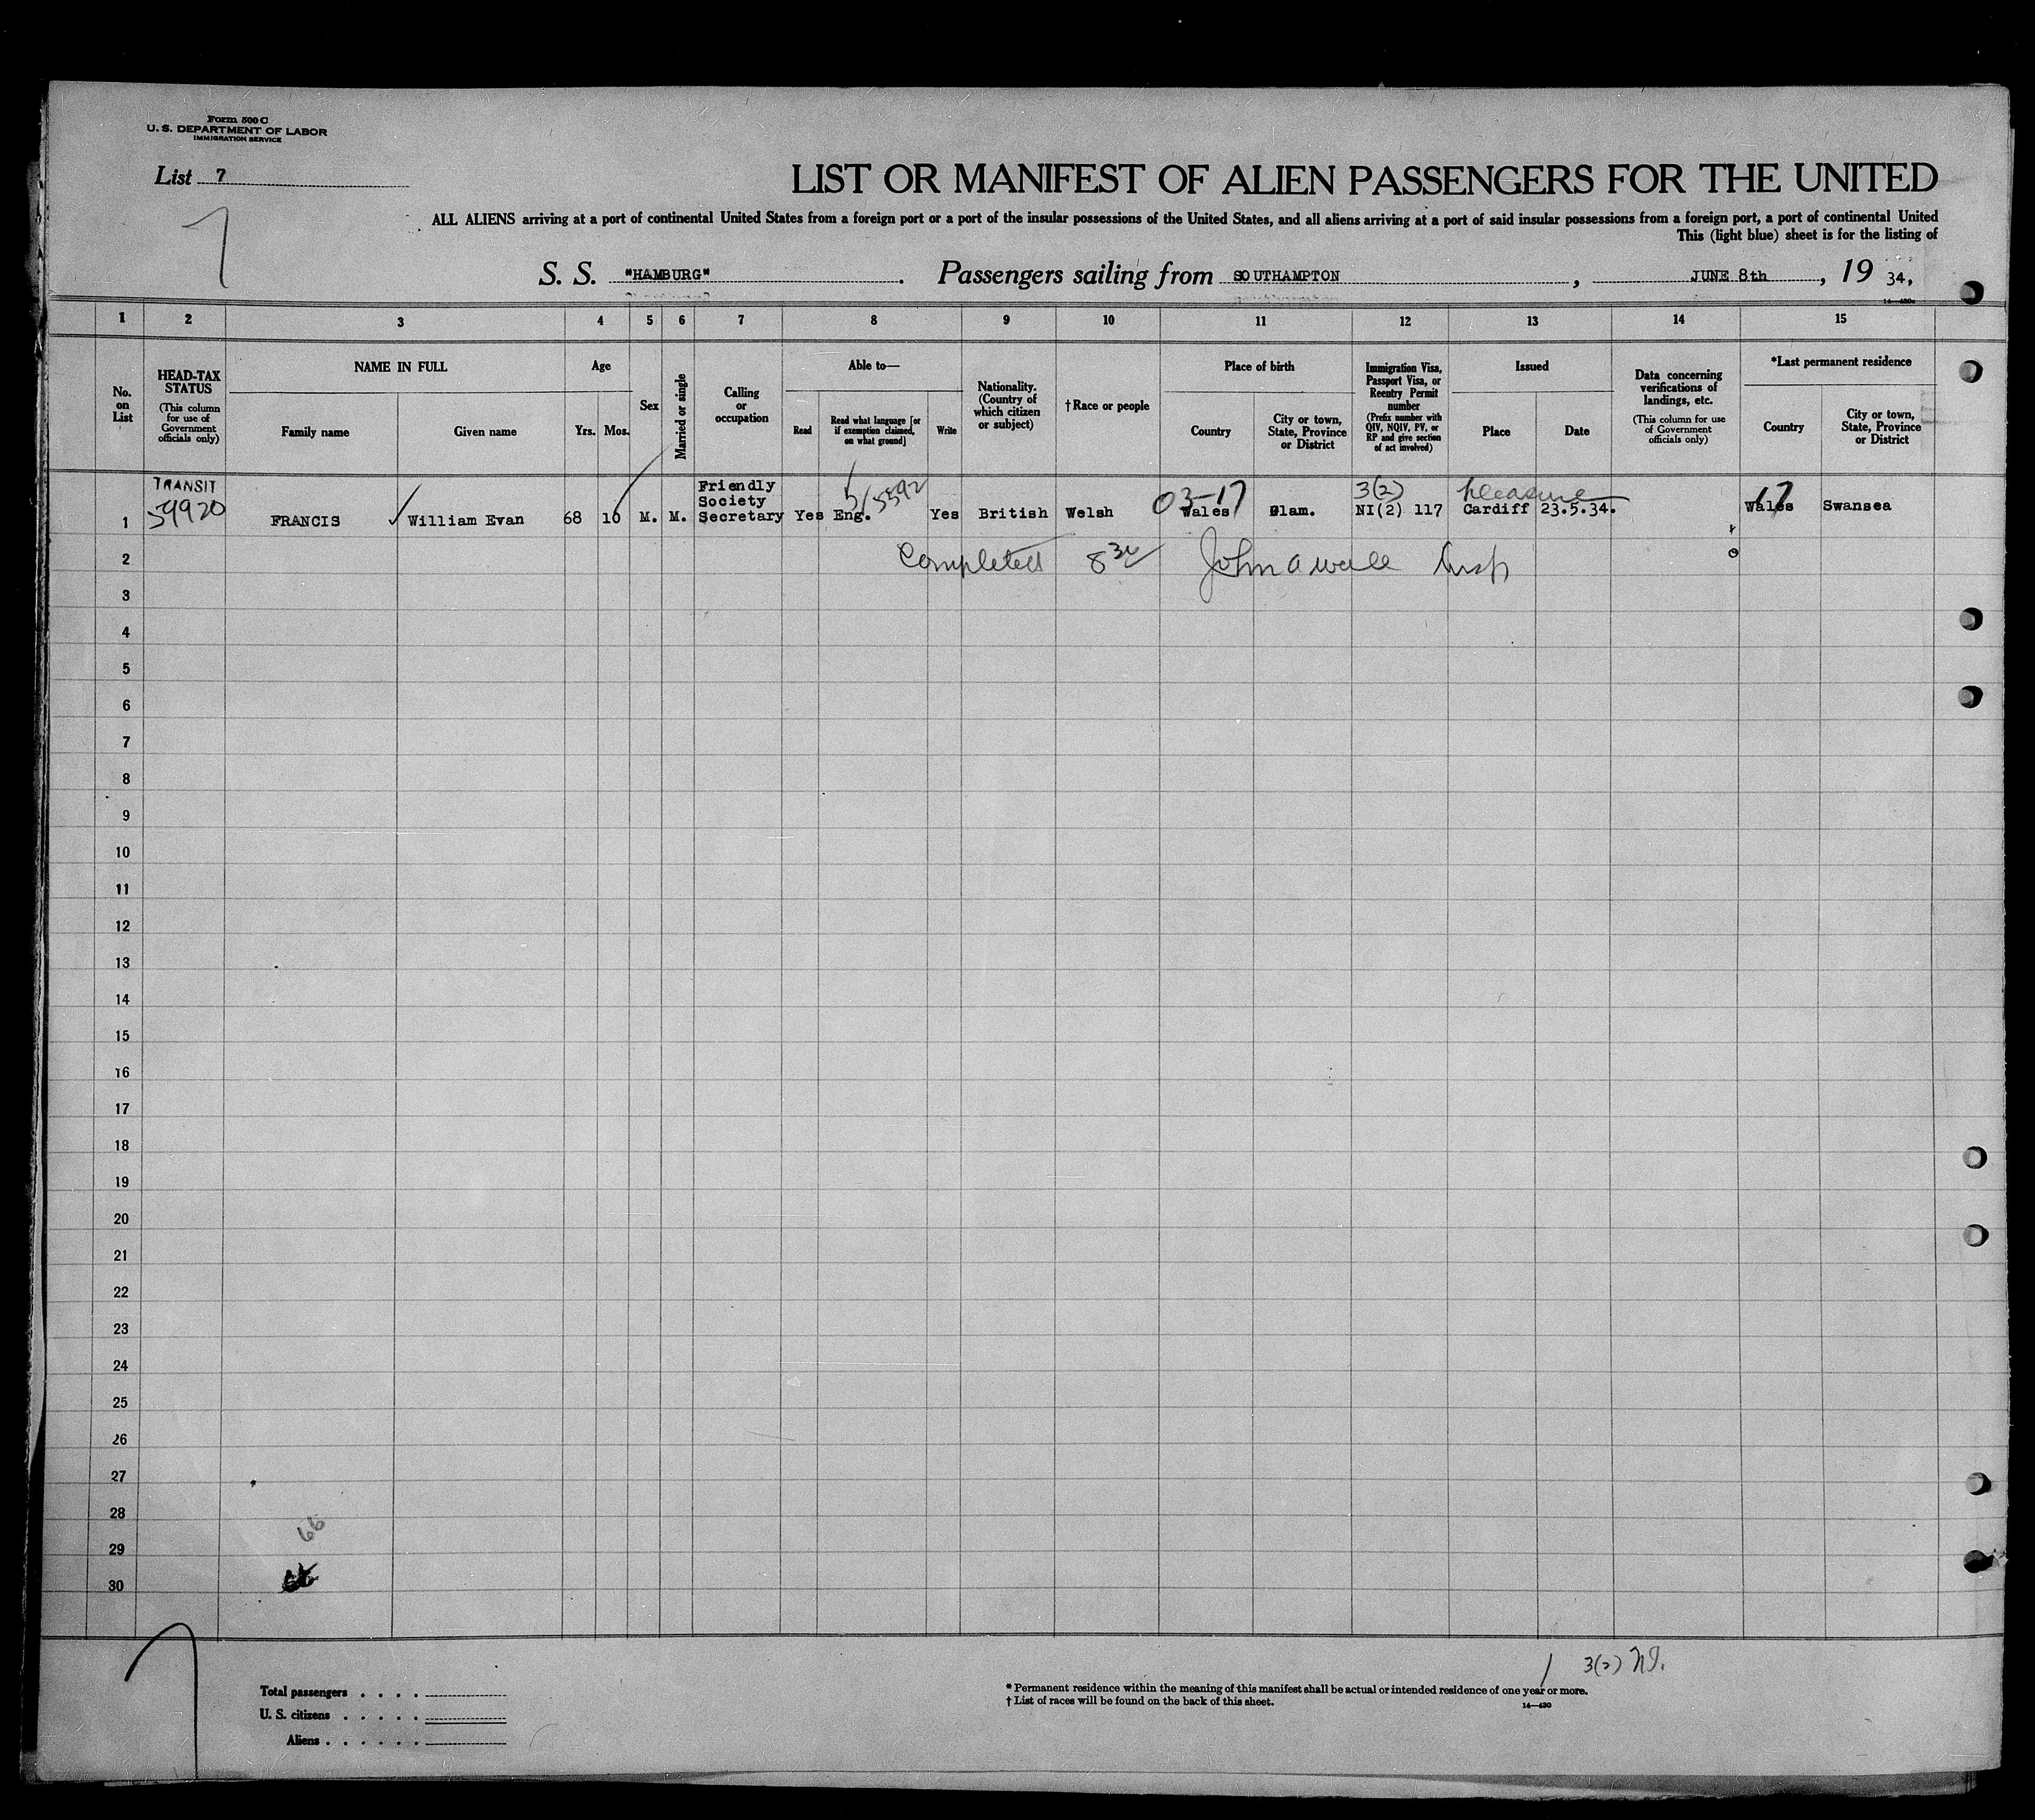 Form 500 C
U. S. DEPARTMENT OF LABOR
IMMIGRATION SERVICE
List 7
7
LIST OR MANIFEST OF ALIEN PASSENGERS FOR THE UNITED
ALL ALIENS arriving at a port of continental United States from a foreign port or a port of the insular possessions of the United States, and all aliens arriving at a port of said insular possessions from a foreign port, a port of continental United
This (light blue) sheet is for the listing of
S. S. "HAMBURG". Passengers sailing from SOUTHAMPTON, JUNE 8th, 19 34,
1 2 3 4 5 6 7 8 9 10 11 12 13 14 15
No. on List
HEAD-TAX STATUS (This column for use of Government officials only)
NAME IN FULL
Family name
Given name
Age
Yrs. Mos.
Sex
Married or single
Calling or occupation
Able to—
Read
Read what language [or if exemption claimed, on what ground]
Write
Nationality. (Country of which citizen or subject)
†Race or people
Place of birth
Country
City or town, State, Province or District
Immigration Visa, Passport Visa, or Reentry Permit number (Prefix number with QIV, NQIV, PV, or RP and give section of act involved)
Issued
Place
Date
Data concerning verifications of landings, etc. (This column for use of Government officials only)
*Last permanent residence
Country
City or town, State, Province or District
TRANSIT
59920
3(2) pleasure
03-17 17
1 FRANCIS William Evan 68 10 M. M. Friendly Society Secretary Yes Eng. Yes British Welsh Wales Glam. NI(2) 117 Cardiff 23.5.34. Wales Swansea
Completed 8 30 John a Wall Insp
2
3
4
5
6
7
8
9
10
11
12
13
14
15
16
17
18
19
20
21
22
23
24
25
26
27
28
66
29
30
7
1 3(2) NI.
Total passengers . . . .
U. S. citizens . . . . .
Aliens . . . . . .
* Permanent residence within the meaning of this manifest shall be actual or intended residence of one year or more.
† List of races will be found on the back of this sheet.
14—430